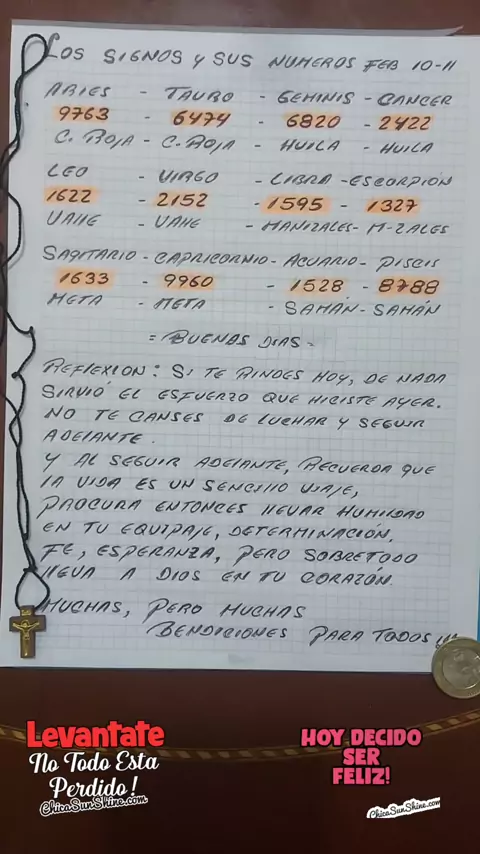 LOS SIGNOS Y SUS NUMEROS FEB 10-11
ARIES - TAURO - GEMINIS - CANCER
9763 - 6474 - 6820 - 2422
C. ROJA - C. ROJA - HUILA - HUILA
LEO - VIRGO - LIBRA - ESCORPIÓN
1622 - 2152 - 1595 - 1327
VALLE - VALLE - MANIZALES - M-ZALES
SAGITARIO - CAPRICORNIO - ACUARIO - PISCIS
1633 - 9960 - 1528 - 8788
META - META - SAMÁN - SAMÁN
= BUENOS DIAS =
REFLEXION: SI TE RINDES HOY, DE NADA
SIRVIÓ EL ESFUERZO QUE HICISTE AYER.
NO TE CANSES DE LUCHAR Y SEGUIR
ADELANTE.
Y AL SEGUIR ADELANTE, RECUERDA QUE
LA VIDA ES UN SENCILLO VIAJE,
PROCURA ENTONCES LLEVAR HUMILDAD
EN TU EQUIPAJE, DETERMINACIÓN,
FE, ESPERANZA, PERO SOBRETODO
LLEVA A DIOS EN TU CORAZÓN.
MUCHAS, PERO MUCHAS
BENDICIONES PARA TODOS !!!
Levantate
No Todo Esta
Perdido!
ChicaSunShine.com
HOY DECIDO
SER
FELIZ!
ChicaSunShine.com